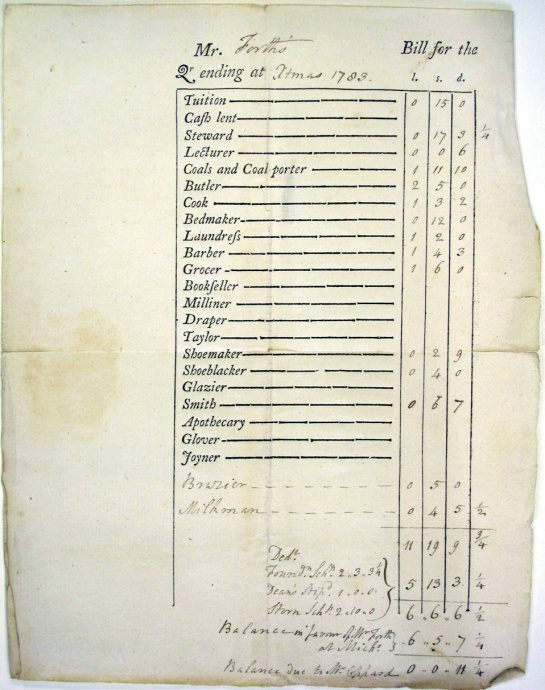 Mr. Forth's Bill for the
Qr ending at Xtmas 1783. l. s. d.
Tuition 0 15 0
Caſh lent
Steward 0 17 3 ¼
Lecturer 0 0 6
Coals and Coal porter 1 11 10
Butler 2 5 0
Cook 1 3 2
Bedmaker 0 12 0
Laundreſs 1 2 0
Barber 1 4 3
Grocer 1 6 0
Bookſeller
Milliner
Draper
Taylor
Shoemaker 0 2 9
Shoeblacker 0 4 0
Glazier
Smith 0 6 7
Apothecary
Glover
Joyner
Brazier 0 5 0
Milkman 0 4 5 ½
11 19 9 ¾
Dedt.
Foundn. Schp. 2-3-3¼
Dean's Stipd. 1-0-0
5 13 3 ¼
Schp. 2-10-0
6-6-6 ½
Balance in favour of Mr. Forth
at Michs. 6-5-7 ¼
Balance due to Mr. 0-0-11 ¼